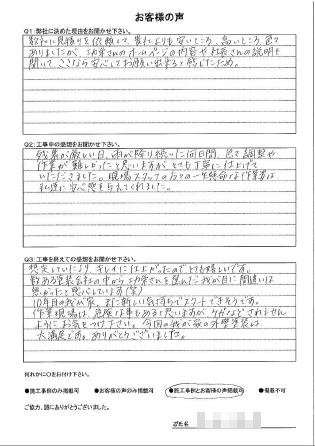 お客様の声
Q1:弊社に決めた理由をお聞かせ下さい。
数社に見積りを依頼して、貴社よりも安いところ、高いところ、色々
ありましたが、功栄さんのホームページの内容や社長さんの説明を
聞いて、ここなら安心してお願い出来ると感じたため。
Q2:工事中の感想をお聞かせ下さい。
残暑が厳しい日、雨が降り続いた何日間、色々調整や
作業が難しかったと思いますが、とても丁寧に仕上げて
いただきました。現場スタッフの方々の一生懸命な作業は
私達に安心感を与えてくれました。
Q3:工事を終えての感想をお聞かせ下さい。
想定していたより、キレイに仕上がったのでとても嬉しいです。
数ある塗装会社の中から功栄さんを選んだ我が目に間違いは
無かったと感じています(笑)
10年目の我が家、また新しい気持ちでスタートできそうです。
作業現場は、危険な事もあると思いますが、ケガなどされません
ようにお気をつけ下さい。今回の我が家の外壁塗装は、
大満足です。ありがとうございました。
何れかに○をお付け下さい。
●施工事例のみ掲載可 ●お客様の声のみ掲載可 ●施工事例とお客様の声掲載可 ●掲載不可
ご協力、誠にありがとうございました。
お名前